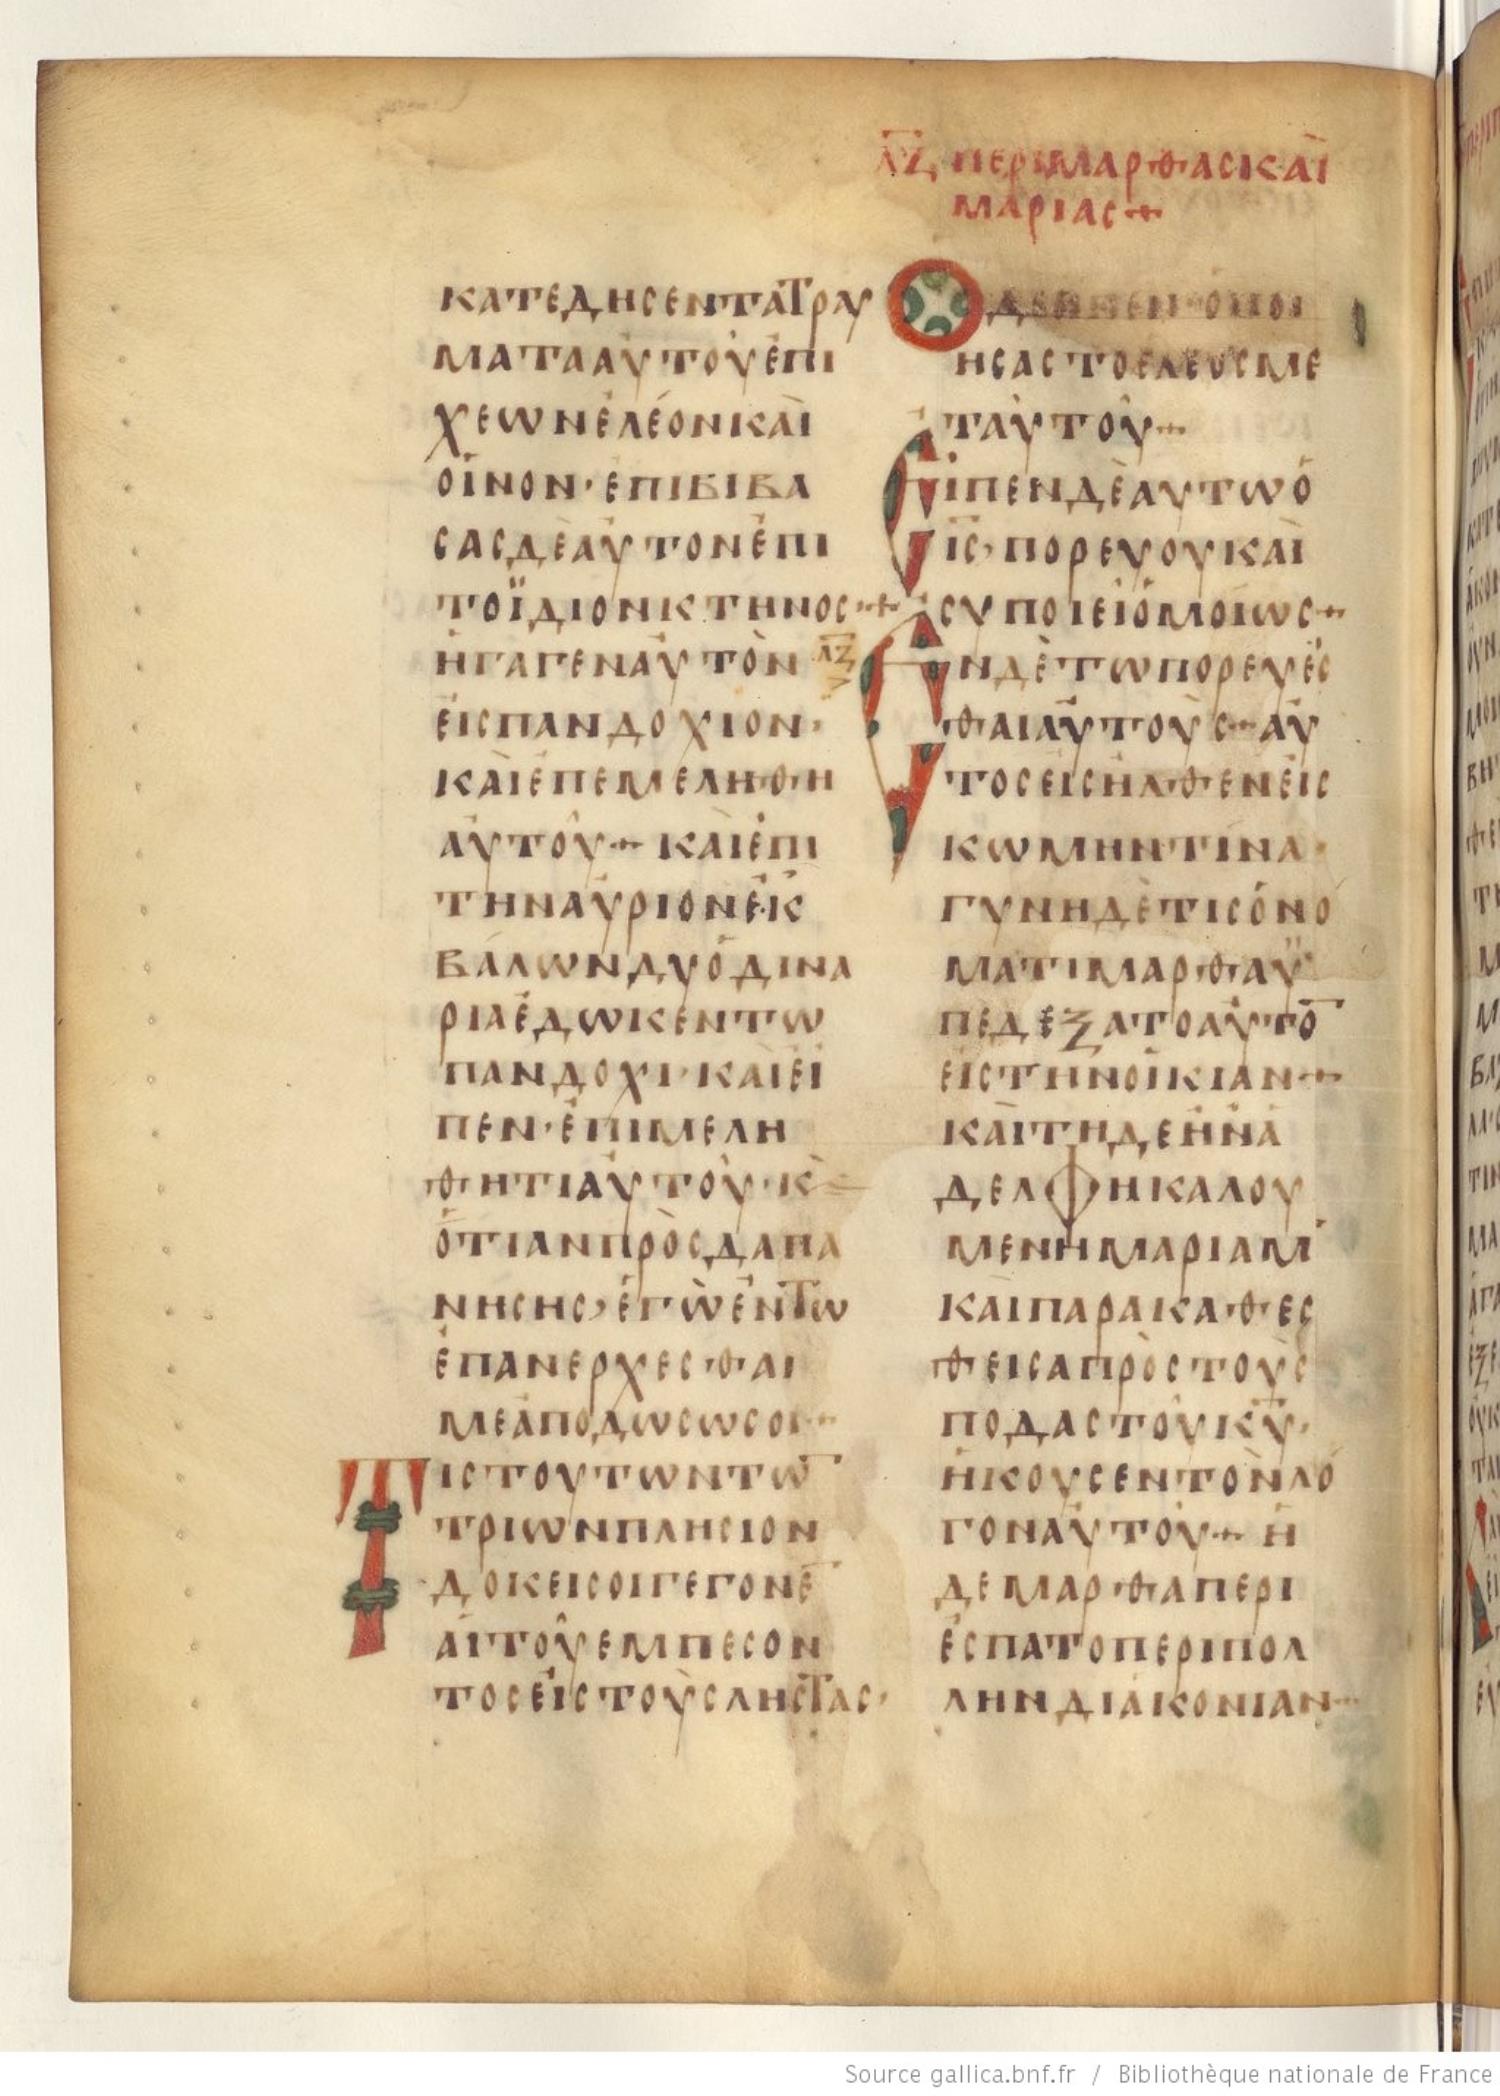 λζ περιμαρθασκαὶ
μαριας+
κατεδησενταΤραυ
ματααὐτοῦἐπι
χεωνἐλέονκαὶ
οἶνον·ἐπιβιβα
σαςδὲαὐτονἐπι
τοϊδιονκτηνος·+
ἠγαγεναὐτὸν
εἰςπανδοχιον·
καὶἐπεμεληθη
αὐτοῦ+καὶἐπι
τηναὐριονἐκ
βαλωνδυὀδινα
ριαἐδωκεντω
πανδοχι·καὶεἰ
πεν·ἐπιμελη
θητιαὐτοῦ·κ
ὁτιανπρὸςδαπα
νησης,ἐγὼἐντω
ἐπανερχεσθαι
μεἀποδωσωσοι+
Τιςτουτωντω̅
τριωνπλησιον
δοκεισοιγεγονε̅
αιτοῦεμπεσον
τοςεἰςτοὺςληστας·
Οδεειπεν·ὁποι
ησαςτοελευςμε
ταὐτοῦ+
Εἰπενδὲαυτωὁ
ις,πορευουκαὶ
συποιειὁμοίως+
λζ
Ενδὲτωπορευες
θαιαὐτοὺς+αὐ
τοςεἰσηλθενεἰς
κωμηντινα·
γυνηδὲτιςὀνο
ματιμαρθαὑ
πεδεξατοαὐτο̅
εἰςτηνοἰκιαν+
καὶτηδεἠνἀ
δελφηκαλου
μενημαριαμ
καὶπαρακαθες
θεισαπρὸςτοὺς
ποδαςτοῦκυ̅·
ἠκουσεντὸνλό
γοναὐτοῦ+ἡ
δεμαρθαπερι
ἐσπατοπεριπολ
ληνδιἀκονιαν+
Source gallica.bnf.fr / Bibliothèque nationale de France